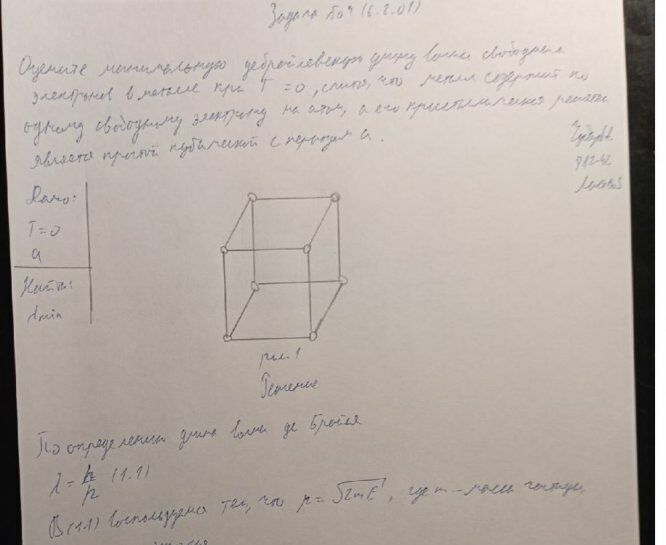 Задача №4 (6.2.01)
Оцените минимальную дебройлевскую длину волны свободных
электронов в металле при T = 0, считая, что металл содержит по
одному свободному электрону на атом, а его кристаллическая решетка
является простой кубической с периодом a.
Дано:
T = 0
a
Найти:
λmin
рис. 1
Решение
По определению длина волны де Бройля
λ = h/p (1.1)
В (1.1) воспользуемся тем, что p = √2mE, где m - масса частицы,